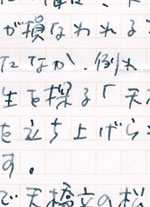 が損なわれる
たなか、例れ
生を探る「天
を立ち上げら
す。
で天橋立の松